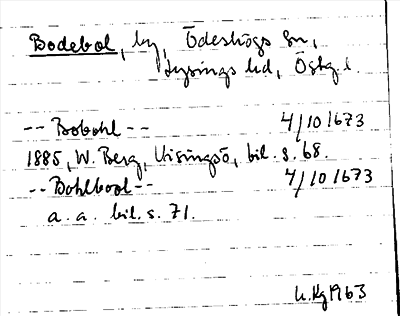 Bodebol, by, Ödeshögs sn,
Lysings hd, Östg. l.
-- Bobohl -- 4/10 1673
1885, W. Berg, Visingsö, bil. s. 68.
-- Bohlbool -- 4/10 1673
a. a. bil. s. 71.
U.Kg 1963